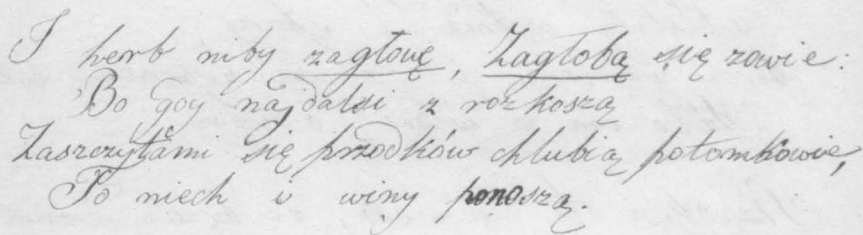 I herb niby zagłowę, Zagłobą się zowie:
Bo gdy najdalsi z rozkoszą
Zaszczytami się przodków chlubią potomkowie,
To niech i winy ponoszą.